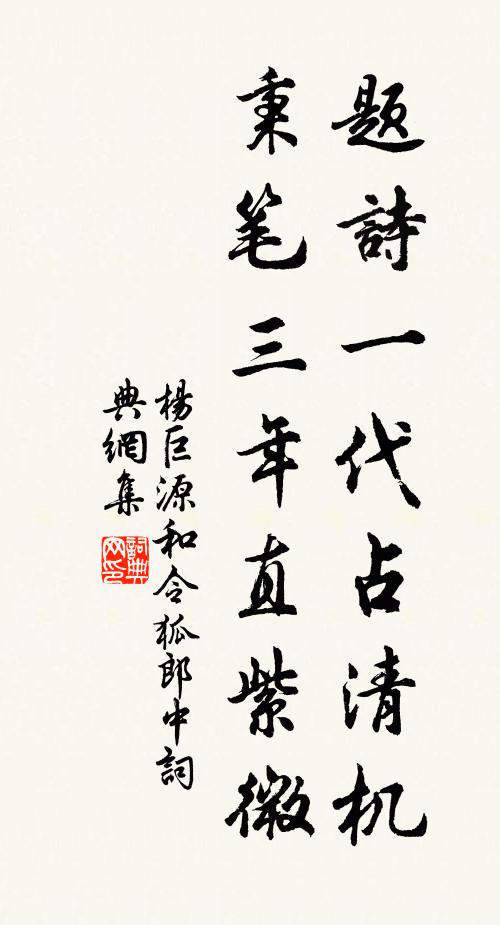 題詩一代占清机
秉笔三年直紫微
楊巨源和令狐郎中詞
典網集
詞典網印